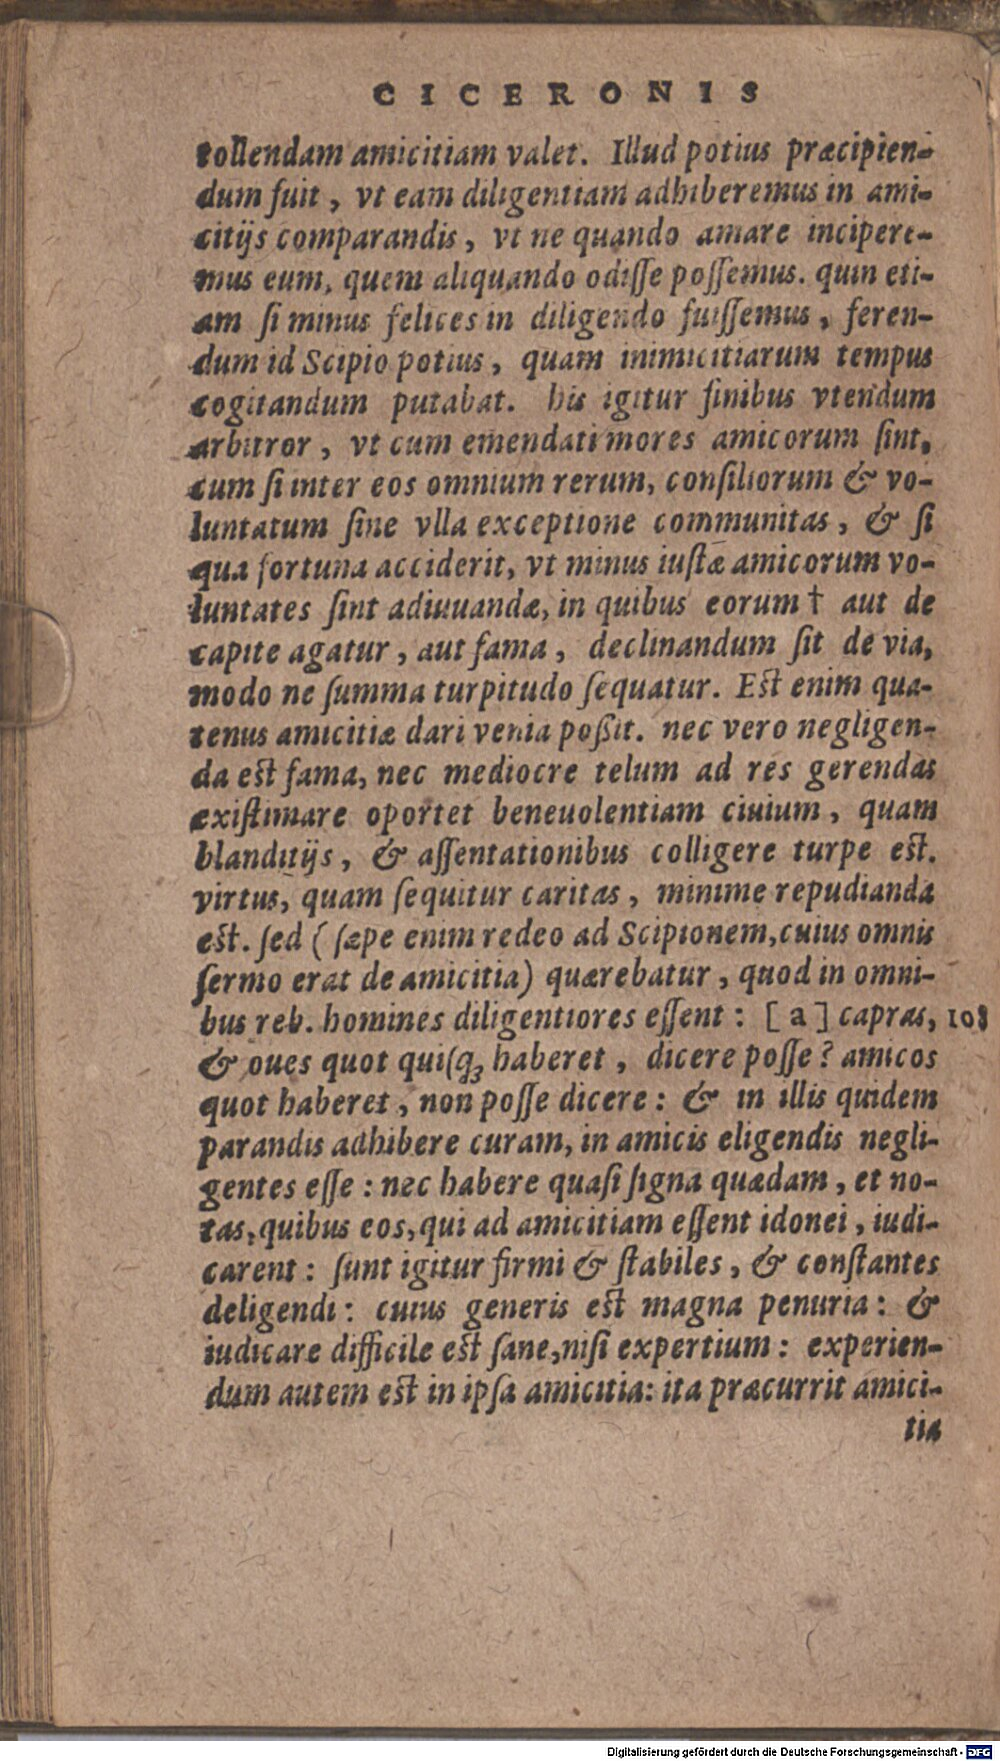 CICERONIS
tollendam amicitiam valet. Illud potius præcipien-
dum fuit, vt eam diligentiam adhiberemus in ami-
citijs comparandis, vt ne quando amare incipere-
mus eum, quem aliquando odisse possemus. quin eti-
am si minus felices in diligendo fuissemus, feren-
dum id Scipio potius, quam inimicitiarum tempus
cogitandum putabat. his igitur finibus vtendum
arbitror, vt cum emendati mores amicorum sint,
cum si inter eos omnium rerum, consiliorum & vo-
luntatum sine vlla exceptione communitas, & si
qua fortuna acciderit, vt minus iustæ amicorum vo-
luntates sint adiuuandæ, in quibus eorum † aut de
capite agatur, aut fama, declinandum sit de via,
modo ne summa turpitudo sequatur. Est enim qua-
tenus amicitiæ dari venia poßit. nec vero negligen-
da est fama, nec mediocre telum ad res gerendas
existimare oportet beneuolentiam ciuium, quam
blanditijs, & assentationibus colligere turpe est.
virtus, quam sequitur caritas, minime repudianda
est. sed (sæpe enim redeo ad Scipionem,cuius omnis
sermo erat de amicitia) quærebatur, quod in omni-
bus reb. homines diligentiores essent: [a] capras, 108
& oues quot quisqꝫ haberet, dicere posse? amicos
quot haberet, non posse dicere: & in illis quidem
parandis adhibere curam, in amicis eligendis negli-
gentes esse: nec habere quasi signa quædam, et no-
tas, quibus eos, qui ad amicitiam essent idonei, iudi-
carent: sunt igitur firmi & stabiles, & constantes
deligendi: cuius generis est magna penuria: &
iudicare difficile est sane,nisi expertium: experien-
dum autem est in ipsa amicitia: ita præcurrit amici-
tia
Digitalisierung gefördert durch die Deutsche Forschungsgemeinschaft - DFG